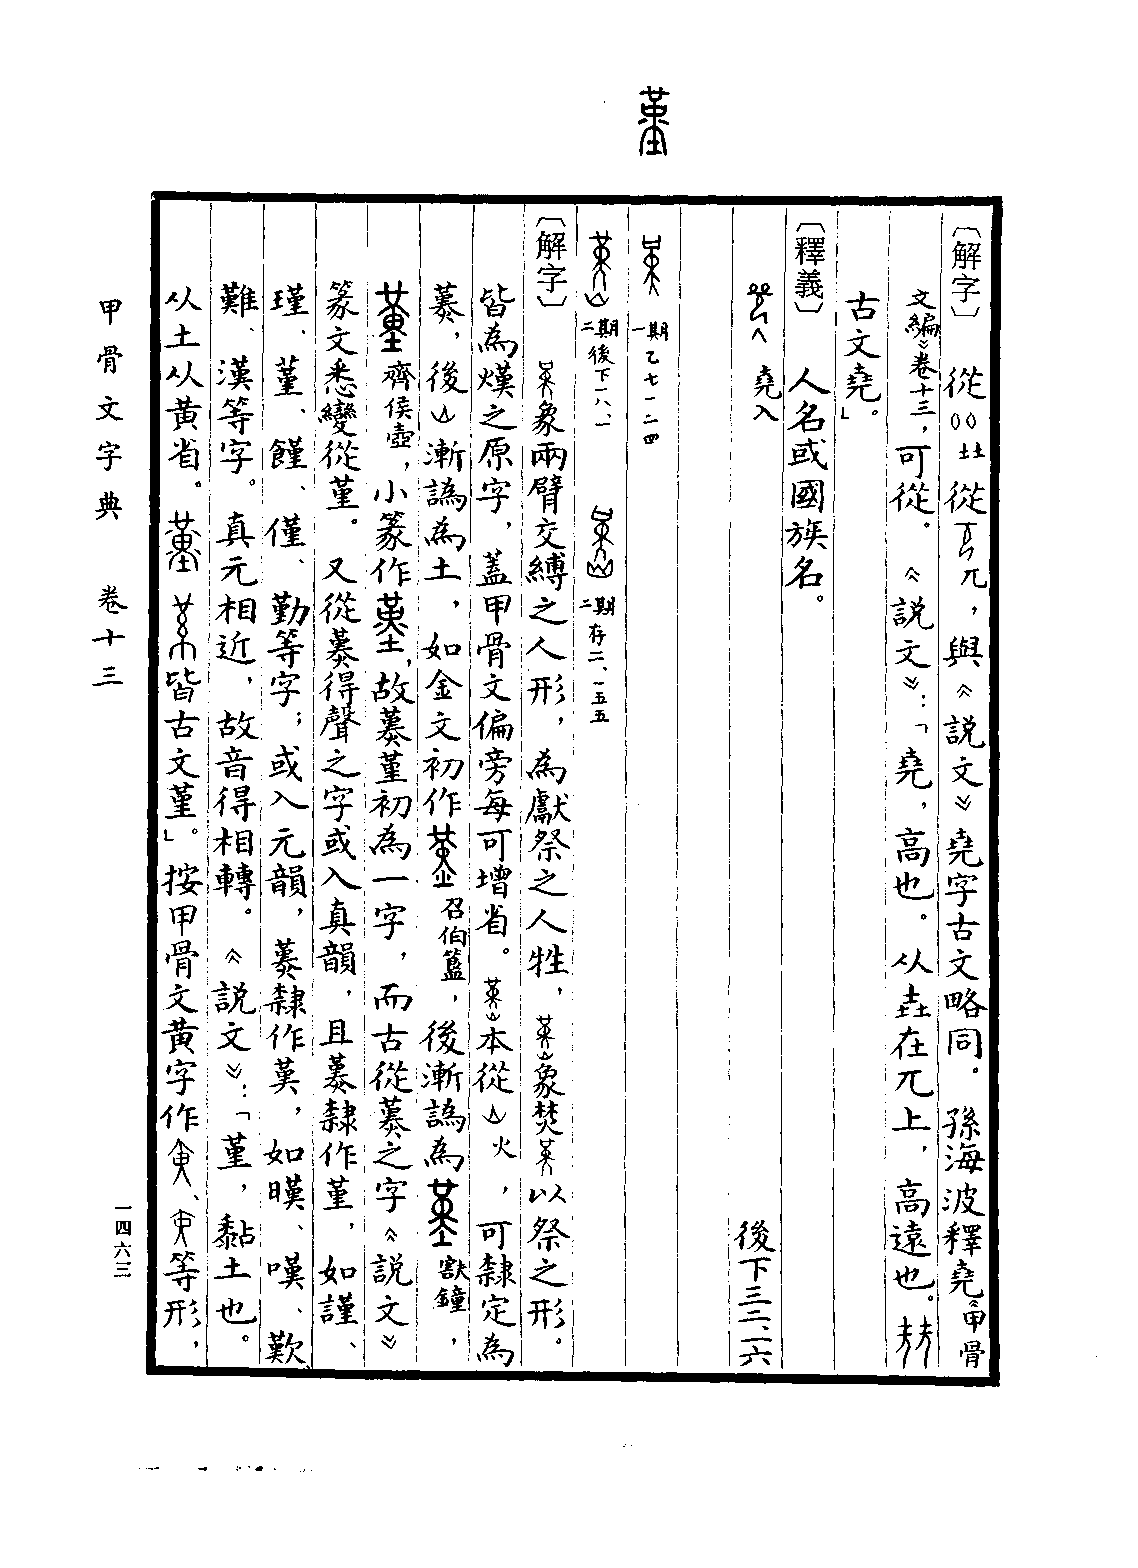 堇
〔解字〕從〇〇土土從兀，與《説文》堯字古文略同。孫海波釋堯《甲骨
文編》卷十三，可從。《説文》：「堯，高也。从垚在兀上，高遠也。
古文堯。」
〔釋義〕人名或國族名。
堯入 後下三二、一六
一期 乙七一二四
二期 後下一八、一 二期 存二、一五五
〔解字〕象兩臂交縛之人形，為獻祭之人牲，象焚以祭之形。
皆為熯之原字，蓋甲骨文偏旁每可增省。本從火，可隸定為
𦰩，後漸譌為土，如金文初作召伯簋，後漸譌為㝬鐘，
齊侯壺，小篆作，故𦰩堇初為一字，而古從𦰩之字《説文》
篆文悉變從堇。又從𦰩得聲之字或入真韻，且𦰩隸作堇，如謹、
瑾、菫、饉、僅、勤等字；或入元韻，𦰩隸作𦰩，如暵、嘆、歎
難、漢等字。真元相近，故音得相轉。《説文》：「堇，黏土也。
从土从黄省。皆古文堇」。按甲骨文黄字作、等形，
甲骨文字典 卷十三
一四六三